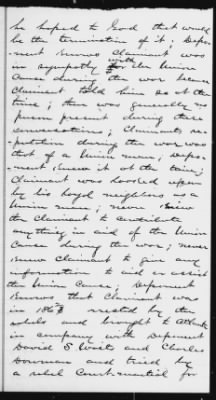 he hoped to God that would
be the termination of it; Depo-
nent knows Claimant was
in sympathy with the Union
Cause during the war because
Claimant told him so at the
time; there was generally no
person present during these
conversations; Claimants re-
putation during the war was
that of a Union man; Depo-
nent knew it at the time;
Claimant was looked upon
by his loyal neighbors as a
Union man; never knew
the Claimant to contribute
anything in aid of the Union
Cause during the war; never
knew Claimant to give any
information to aid or assist
the Union Cause; Deponent
knows that Claimant was
in 186 arrested by the
rebels and brought to
in company with Deponent
David S and Charles
Bowman and tried by
a rebel Court-martial for